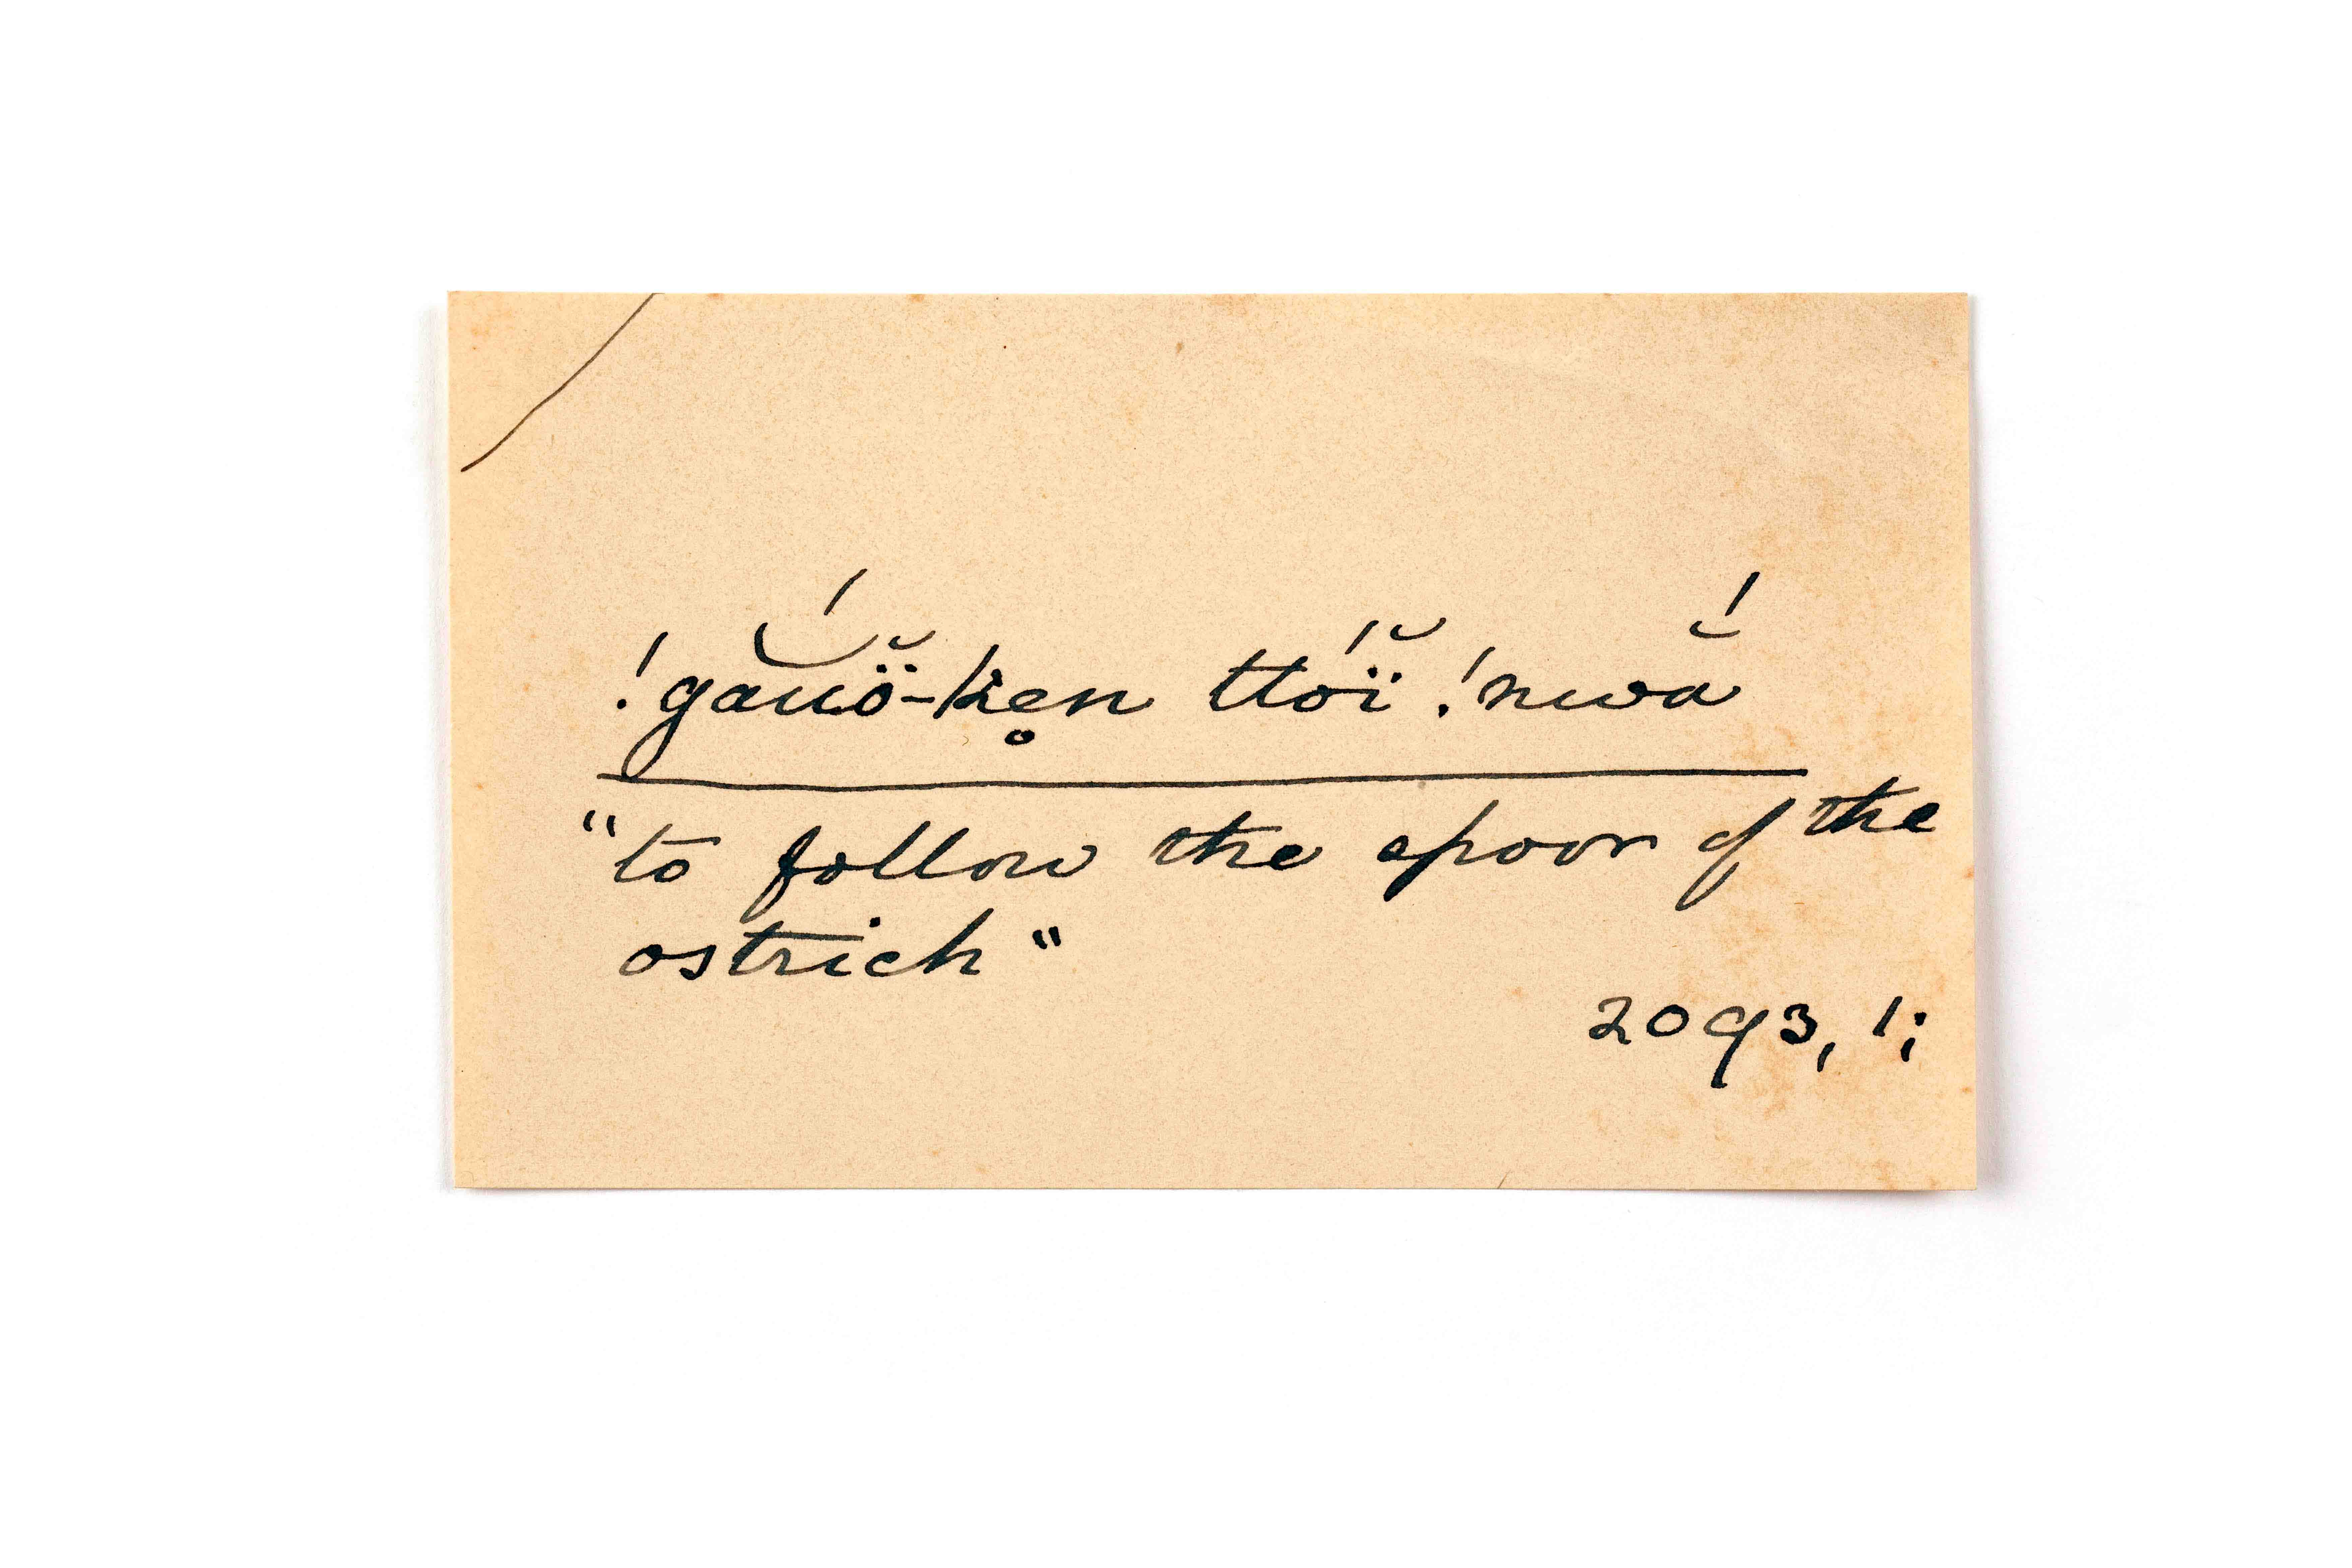 !gaŭŏ̈-k̇en̥ ttóĭ̈ !nwā́
"to follow the spoor of the
ostrich"
2093, 1;